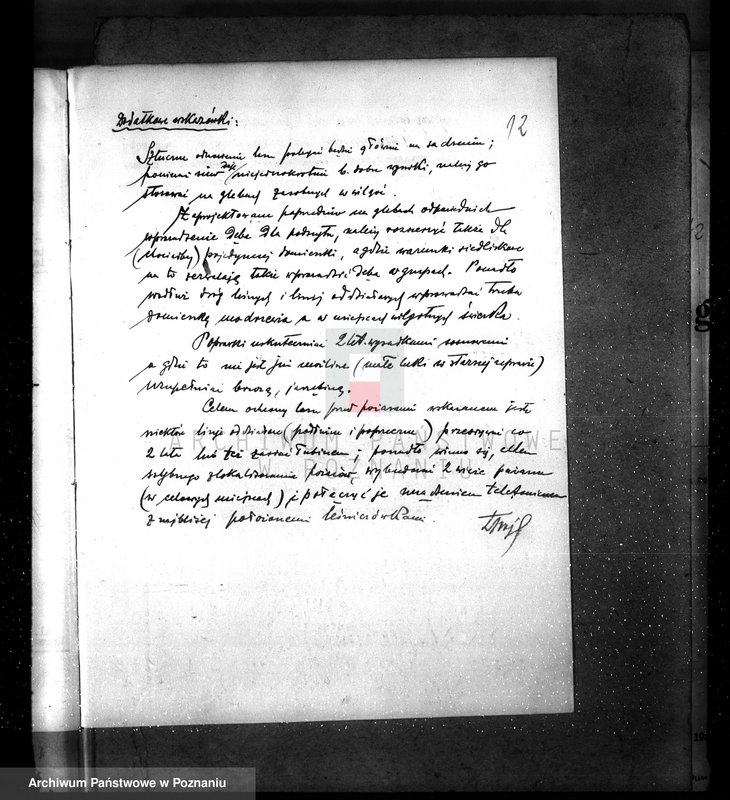 Dodatkowe wskazówki:
12
Sztuczne odnowienie lasu polegać będzie głównie na sadzeniu;
ponieważ siew daje niejednokrotnie b. dobre wyniki, należy go
stosować na glebach zasobnych w wilgoć.
Zaprojektowane poprzednio na glebach odpowiednich
wprowadzenie Dęba dla podszytu, należy rozszerzyć także dla
(choćby) pojedynczej domieszki, a gdzie warunki siedliskowe
na to zezwalają także wprowadzić Dęba w grupach. Ponadto
wzdłuż dróg leśnych i linij oddziałowych wprowadzać trzeba
domieszkę modrzewia a w miejscach wilgotnych świerka.
Poprawki uskuteczniać 2 let. wysadkami sosnowemi
a gdzie to nie jest już możliwe (małe luki w starszej uprawie)
uzupełniać brzozą, jarzębiną.
Celem ochrony lasu przed pożarami wskazanem jest
niektóre linje oddziałowe (podłużne i poprzeczne) przeoryać co
2 lata lub też zasiać łubinem; ponadto winno się, celem
szybkiego zlokalizowania pożarów, wybudować 2 wieże
(w celowych miejscach) i połączyć je urządzeniem telefonicznem
z najbliżej położonemi leśniczówkami.
ARCHIWUM PAŃSTWOWE
W POZNANIU
Archiwum Państwowe w Poznaniu